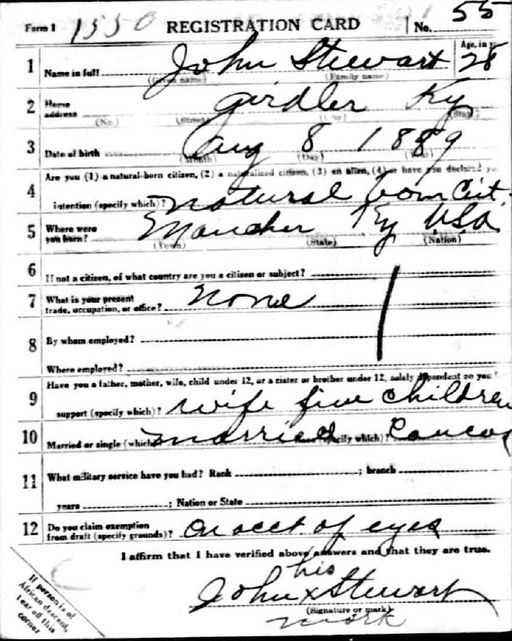 Form 1 1550 REGISTRATION CARD No. 55
1 Name in full John Stewart Age, in y 28
(Given name) (Family name)
2 Home address Girdler Ky
(No.) (Street) (City) (State)
3 Date of birth Aug 8 1889
(Month) (Day) (Year)
4 Are you (1) a natural-born citizen, (2) a naturalized citizen, (3) an alien, (4) or have you declared y
intention (specify which)? natural born Cit.
5 Where were you born? Ky USA
(Town) (State) (Nation)
6 If not a citizen, of what country are you a citizen or subject?
7 What is your present trade, occupation, or office? None
8 By whom employed?
Where employed?
9 Have you a father, mother, wife, child under 12, or a sister or brother under 12, solely dependent on you f
support (specify which)? wife five children
10 Married or single (which) married Race (specify which)? Caucas
11 What military service have you had? Rank ; branch
years ; Nation or State
12 Do you claim exemption from draft (specify grounds)? On acct of eyes
I affirm that I have verified above answers and that they are true.
his
John x Stewart
(Signature or mark)
mark
If person is of
African descent,
tear off this
corner